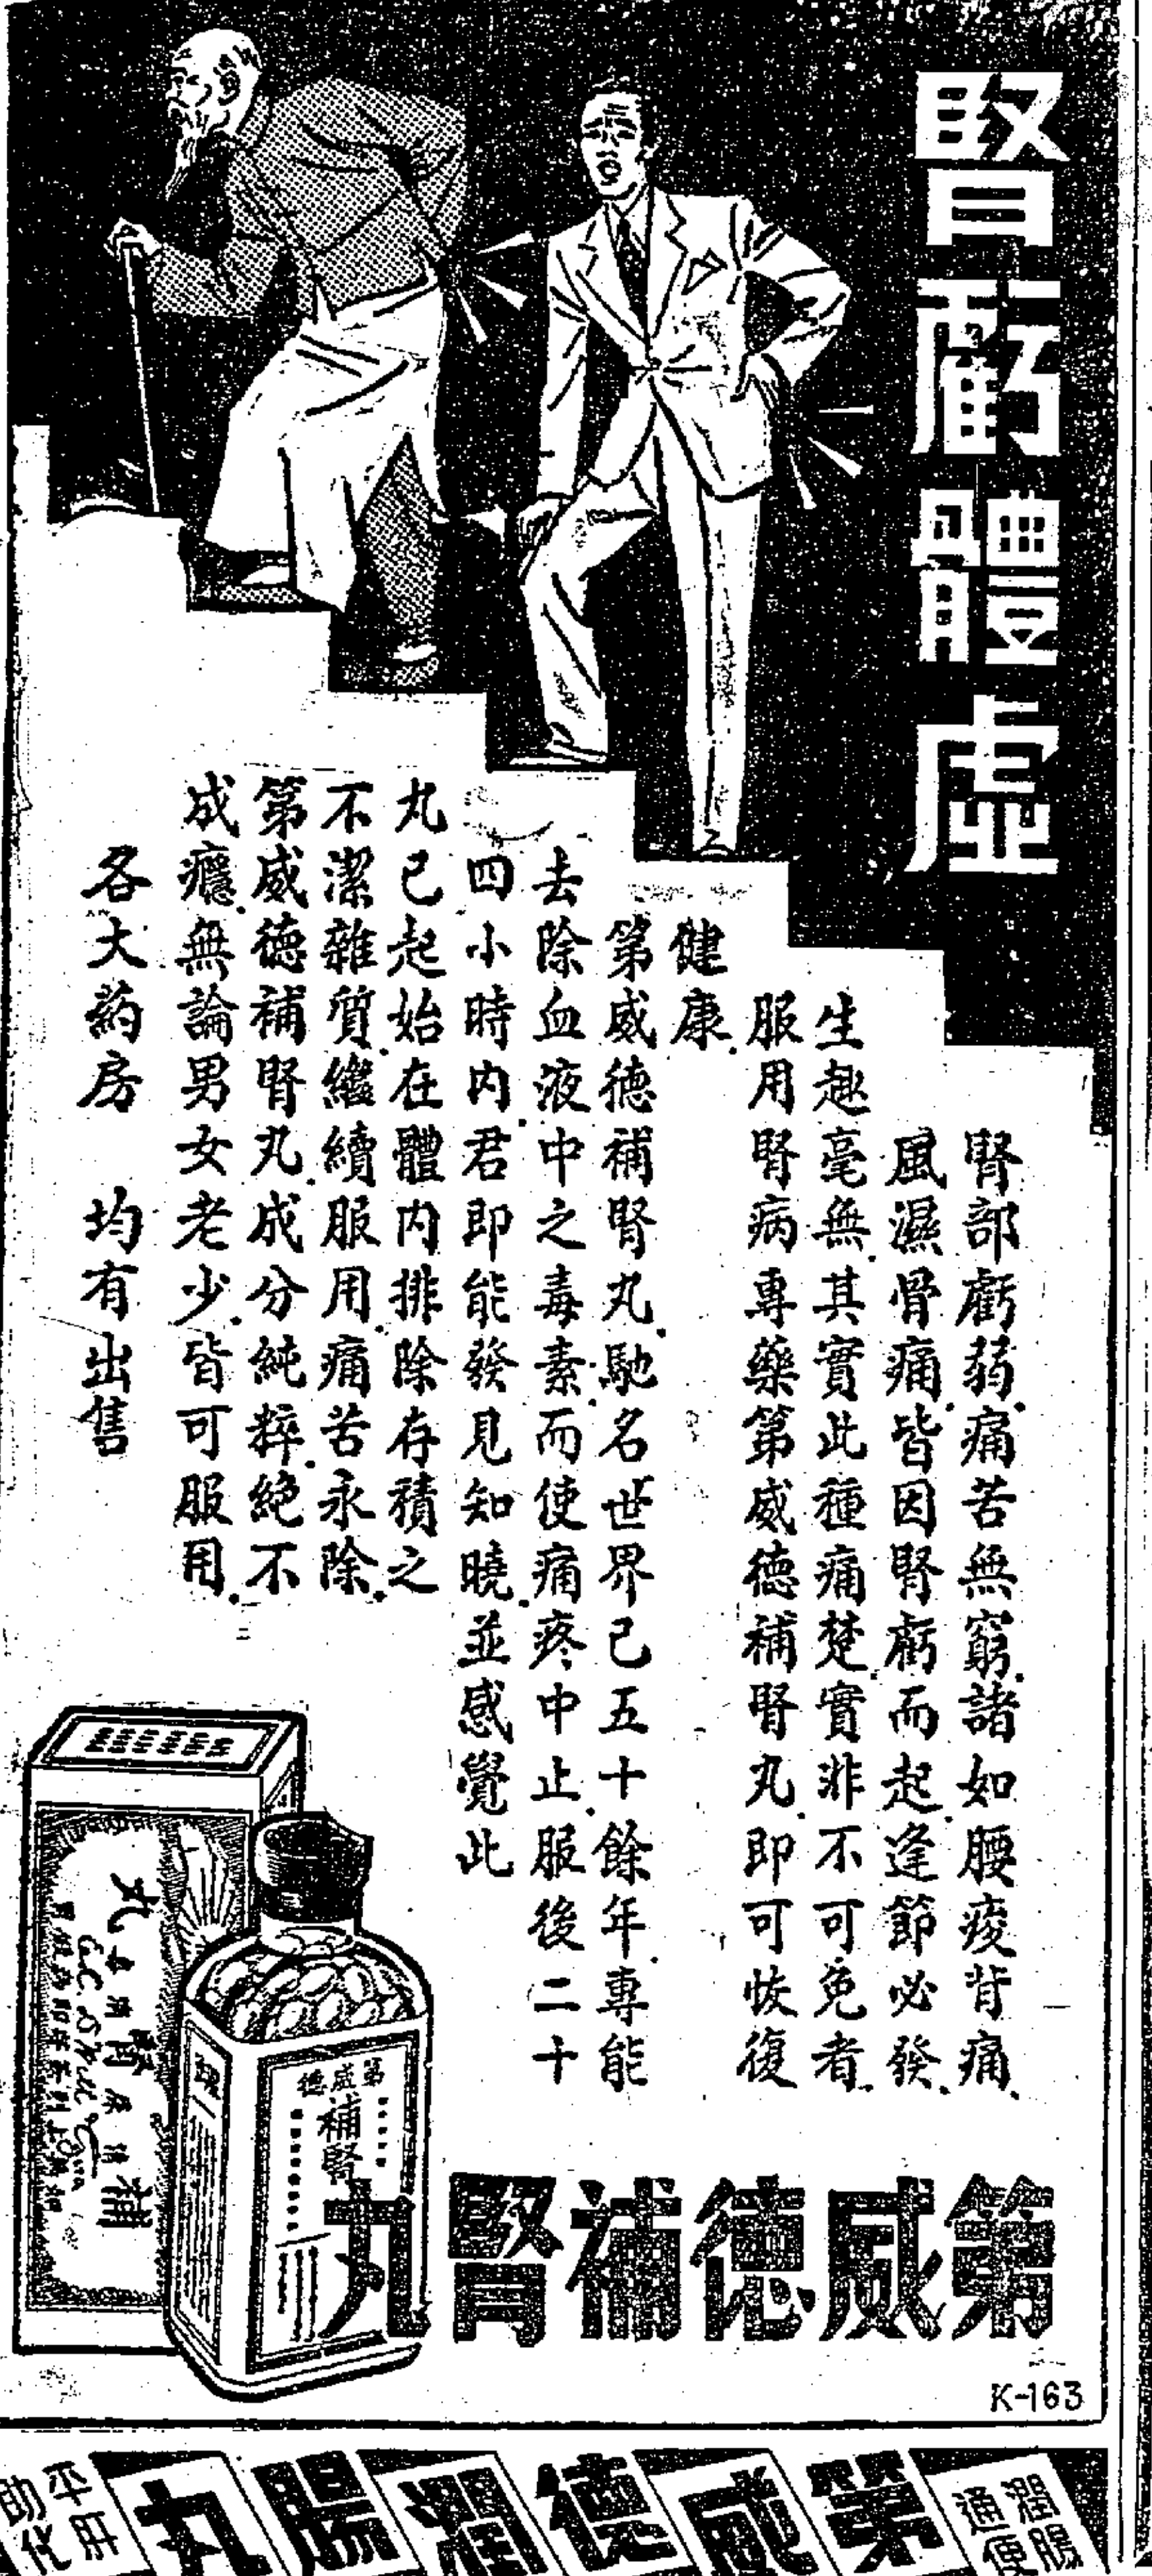 腎虧體虛
腎部虧弱.痛苦無窮.諸如腰痠背痛.
風濕骨痛.皆因腎虧而起.逢節必發.
生趣毫無.其實此種痛楚.實非不可免者.
服用腎病專藥第威德補腎丸.即可恢復
健康.
第威德補腎丸.馳名世界已五十餘年.專能
去除血液中之毒素.而使痛疼中止.服後二十
四小時内.君即能發見知曉.並感覺此
丸已起始在體内排除存積之
不潔雜質.繼續服用.痛苦永除.
第威德補腎丸.成分純粹.絕不
成癮.無論男女老少.皆可服用.
各大葯房 均有出售
第威德
補腎
第威德補腎丸
K-163
潤腸
通便
第威德潤腸丸
平肝
助化